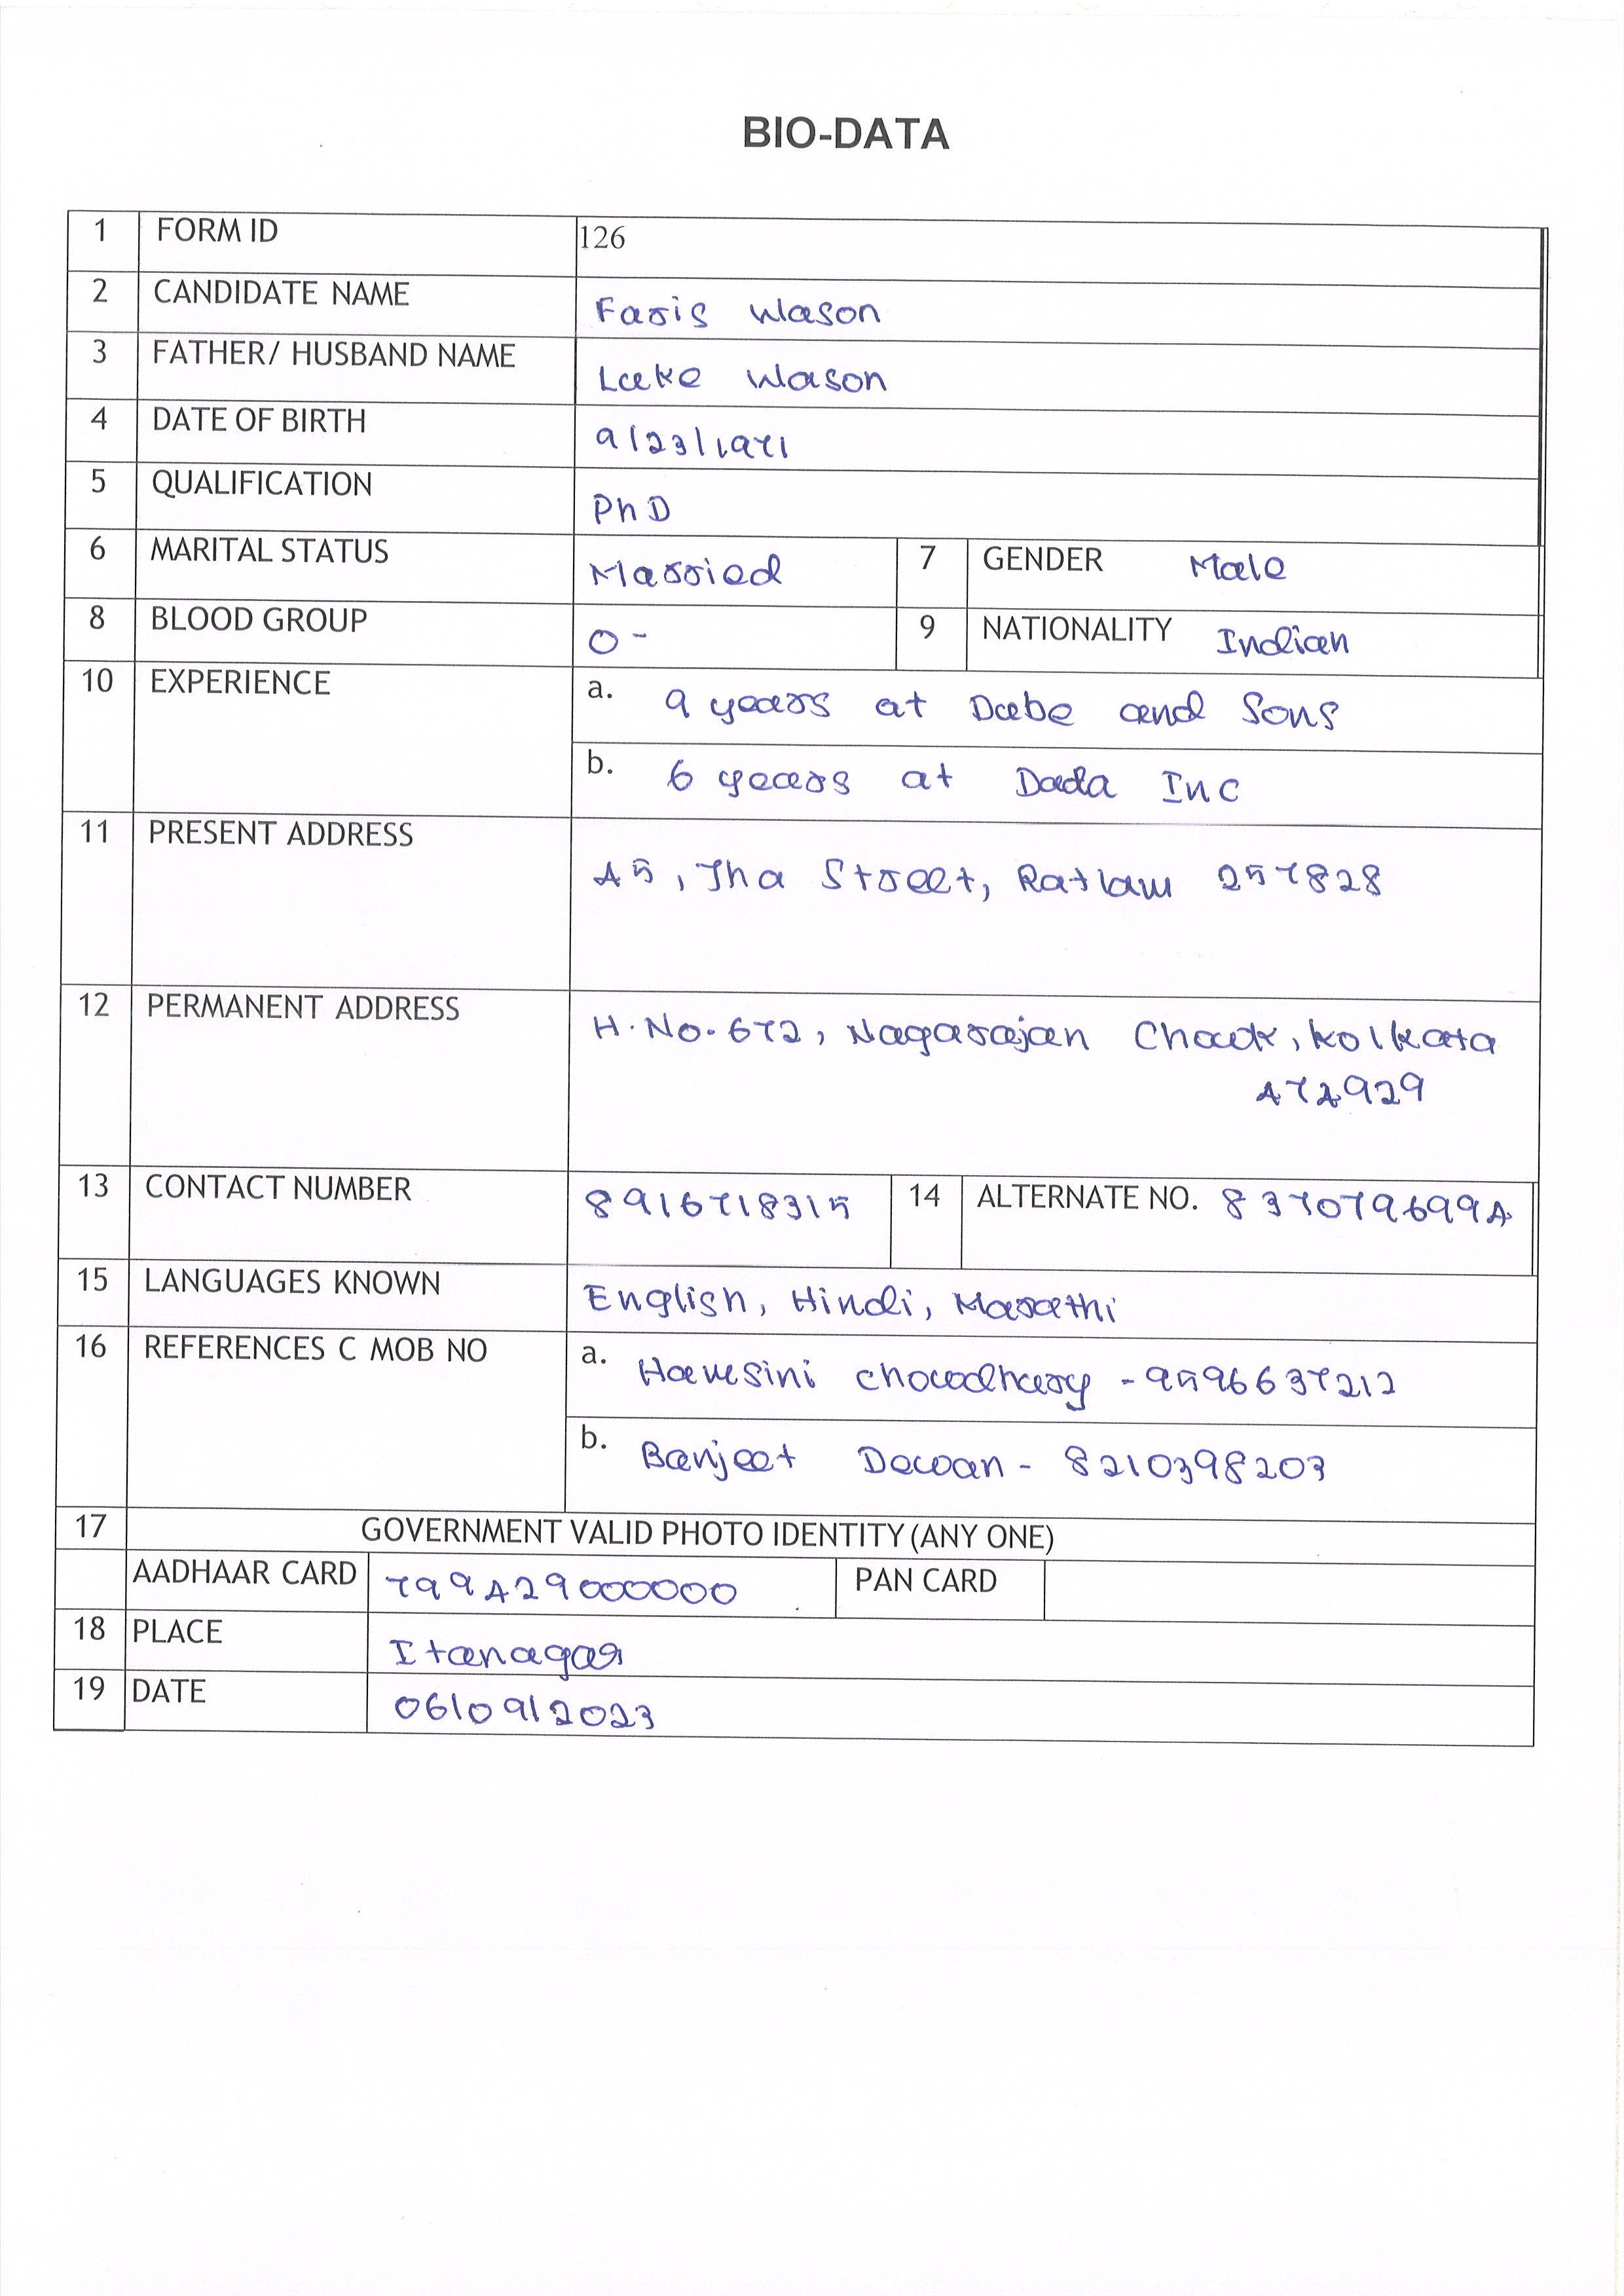 BIO-DATA
1 FORM ID 126
2 CANDIDATE NAME Faris Wason
3 FATHER/ HUSBAND NAME Luke Wason
4 DATE OF BIRTH 9/23/1971
5 QUALIFICATION PhD
6 MARITAL STATUS Married 7 GENDER Male
8 BLOOD GROUP O- 9 NATIONALITY Indian
10 EXPERIENCE a. 9 years at Dube and Sons
b. 6 years at Dada Inc
11 PRESENT ADDRESS 45, Jha Street, Ratlam 257828
12 PERMANENT ADDRESS H.No. 672, Nagarajan Chowk, Kolkata
474929
13 CONTACT NUMBER 8916718315 14 ALTERNATE NO. 8370796994
15 LANGUAGES KNOWN English, Hindi, Marathi
16 REFERENCES C MOB NO a. Chowdhury - 9596637212
b. Banjeet Dewan - 8210398203
17 GOVERNMENT VALID PHOTO IDENTITY (ANY ONE)
AADHAAR CARD 799429000000 PAN CARD
18 PLACE Itanagar
19 DATE 06/09/2023